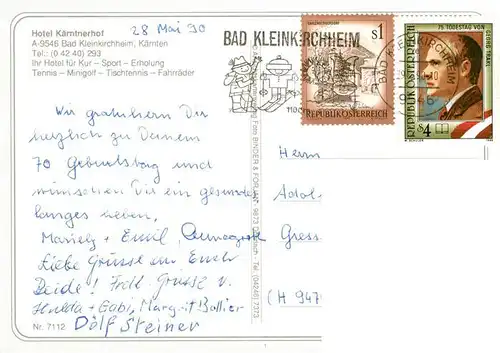 Hotel Kärntnerhof
A-9546 Bad Kleinkirchheim, Kärnten
Tel.: (0 42 40) 293
Ihr Hotel für Kur – Sport – Erholung
Tennis – Minigolf – Tischtennis – Fahrräder
28 Mai 90
BAD KLEINKIRCHHEIM
S1
REPUBLIK ÖSTERREICH
75. TODESTAG VON
GEORG TRAKL
REPUBLIK ÖSTERREICH
S4
Wir gratulieren Dir
herzlich zu Deinem
70 Geburtstag und
wünschen Dir ein gesundes
langes Leben,
Mariely + Emil,
Liebe Grüsse an Euch
Beide! Frdl. Grüsse v.
Hulda + Gabi, Margrit
Dölf Steiner
Nr. 7112
9873
Tel. (04246) 7373
Herrn
Adol-
Gress
(H 947